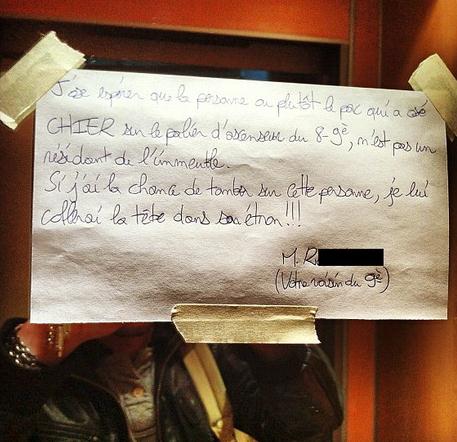 J'ose espérer que la personne ou plutôt le porc qui a osé
CHIER sur le palier d'ascenseur du 8-9è, n'est pas un
résidant de l'immeuble.
Si j'ai la chance de tomber sur cette personne, je lui
collerai la tête dans son étron!!!
M. R
(Votre voisin du 9è)